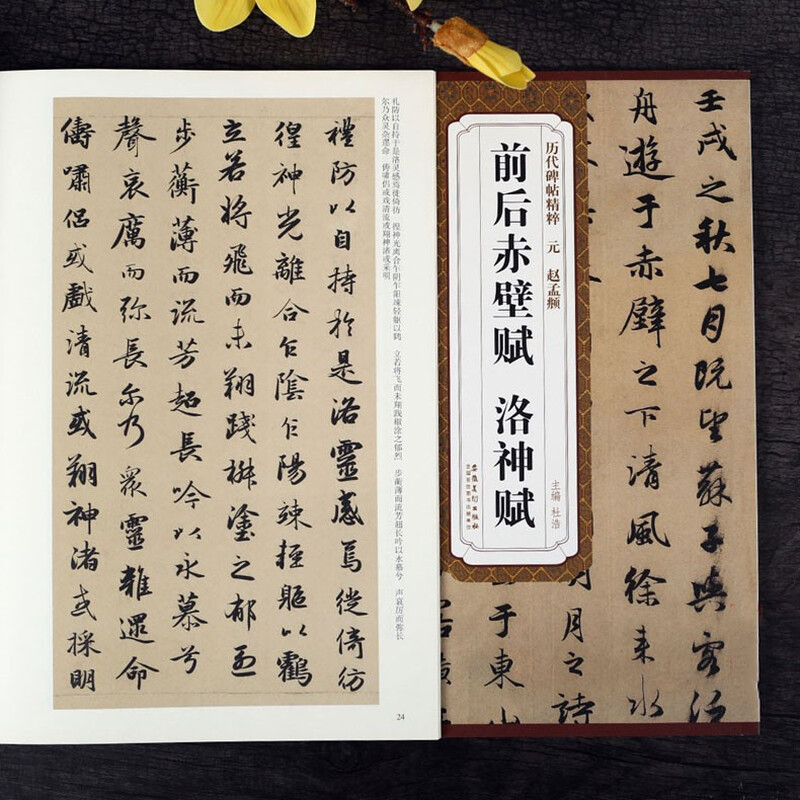 礼防以自持于是洛灵感焉徙倚彷 徨神光离合乍阴乍阳竦轻躯以鹤 立若将飞而未翔践椒涂之郁烈 步蘅薄而流芳超长吟以永慕兮 声哀厉而弥长
尔乃众灵杂遝命 俦啸侣或戏清流或翔神渚或采明
禮防以自持於是洛靈感焉徙倚彷
徨神光離合乍陰乍陽竦輕軀以鸖
立若将飛而未翔踐椒塗之郁烈
步蘅薄而流芳超長吟以永慕兮
聲哀厲而弥長尔乃衆靈雜遝命
儔嘯侶或戲清流或翔神渚或採明
24
壬戌之秋七月既望蘇子與客泛
舟遊于赤壁之下清風徐来水
月之詩
于東山
历代碑帖精粹 元 赵孟頫
前后赤壁赋 洛神赋
主编 杜浩
安徽美术出版社